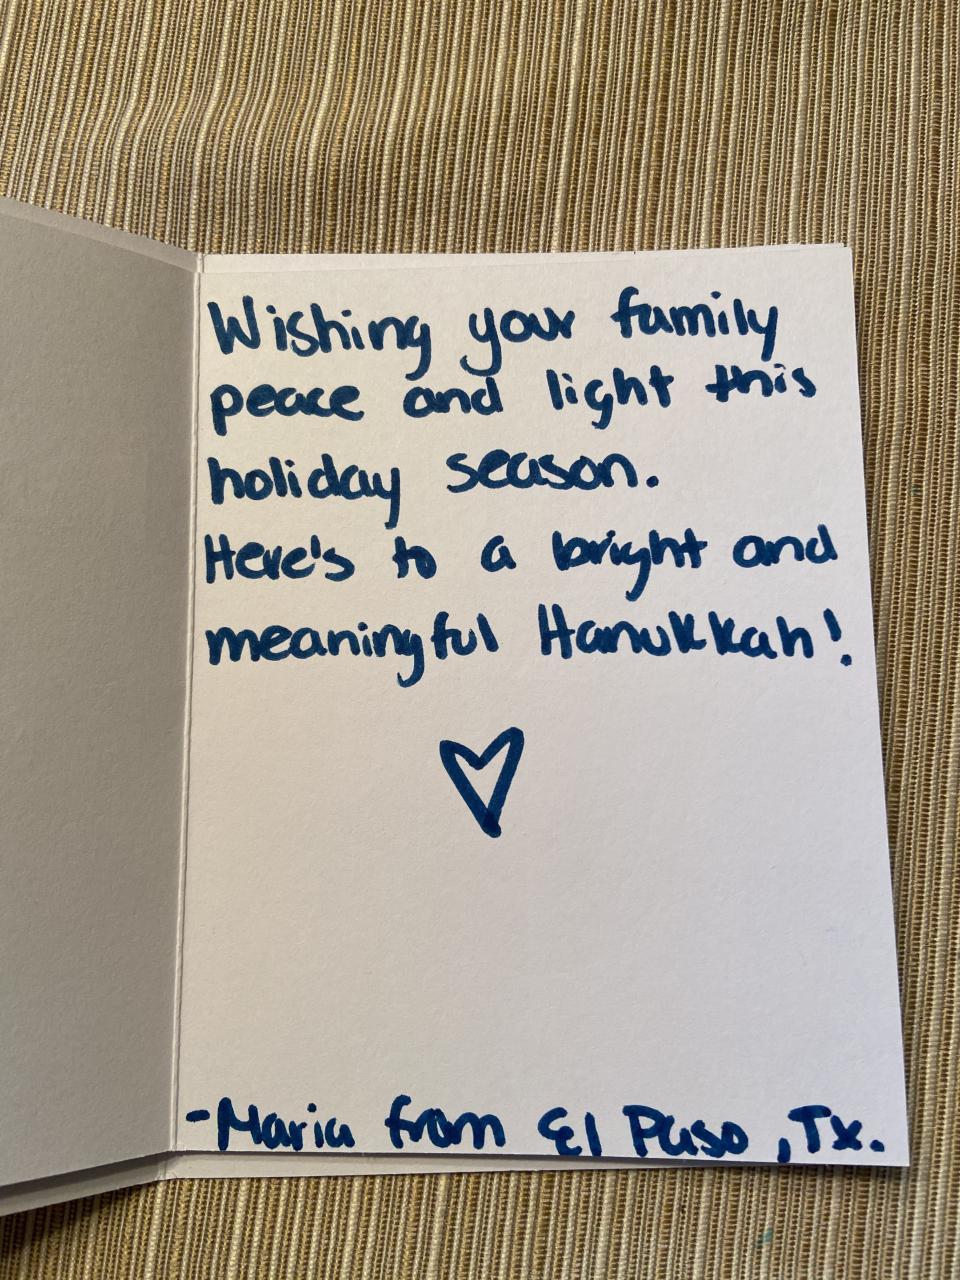 Wishing your family
peace and light this
holiday season.
Here's to a bright and
meaningful Hanukkah!
-Maria from El Paso, Tx.